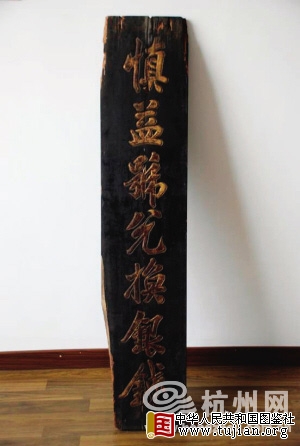 慎益號兌換銀錢
杭州网
中华人民共和国图鉴社
www.tujian.org